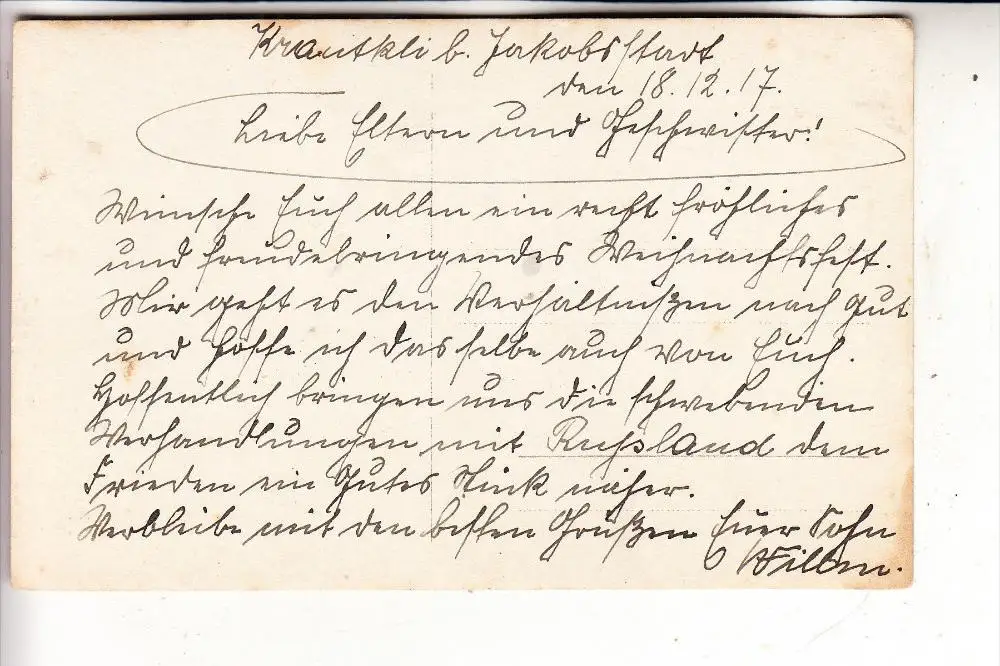 Krautkli b. Jakobsstadt
den 18.12.17.
Liebe Eltern und Geschwister!
Wünsche Euch allen ein recht fröhliches
und freudebringendes Weihnachtsfest.
Mir geht es den Verhältnißen nach gut
und hoffe ich dasselbe auch von Euch.
Hoffentlich bringen uns die schwebenden
Verhandlungen mit Rußland dem
Frieden ein gutes Stück näher.
Verbleibe mit den besten Grüßen Euer Sohn